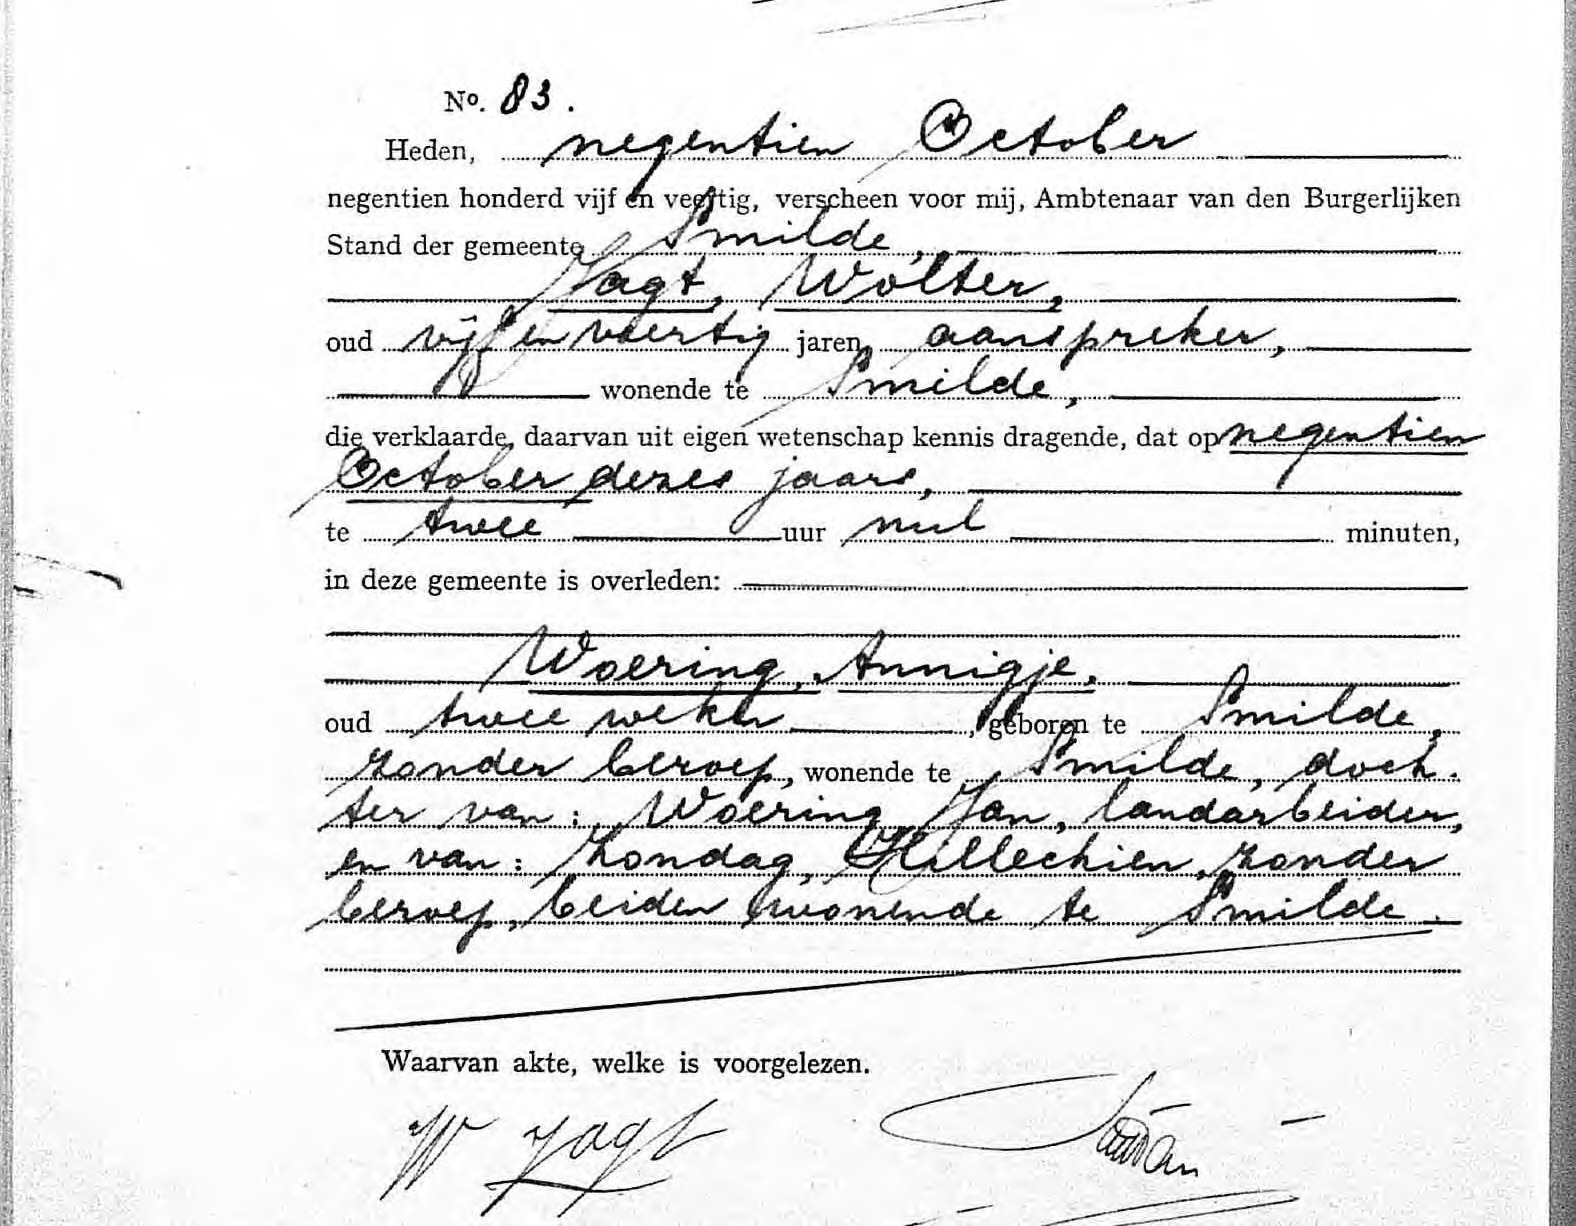 No. 83.
Heden, negentien October
negentien honderd vijf en veertig, verscheen voor mij, Ambtenaar van den Burgerlijken
Stand der gemeente Smilde,
Jagt, Wolter,
oud vijf en veertig jaren, aanspreker,
wonende te Smilde,
die verklaarde, daarvan uit eigen wetenschap kennis dragende, dat op negentien
October dezes jaars,
te twee uur nul minuten,
in deze gemeente is overleden:
Woering, Annigje,
oud twee weken, geboren te Smilde,
zonder beroep, wonende te Smilde, doch-
ter van: Woering, Jan, landarbeider,
en van: Zondag, Hillechien, zonder
beroep, beiden wonende te Smilde.
Waarvan akte, welke is voorgelezen.
W Jagt